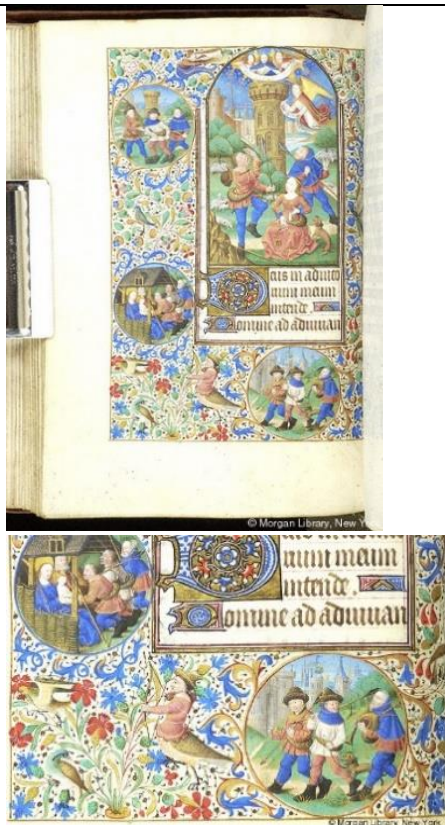 Deus in adiuto
rium meum
intende.
Domine ad adiuuan
© Morgan Library, New York
rium meum
intende.
Domine ad adiuuan
© Morgan Library, New York